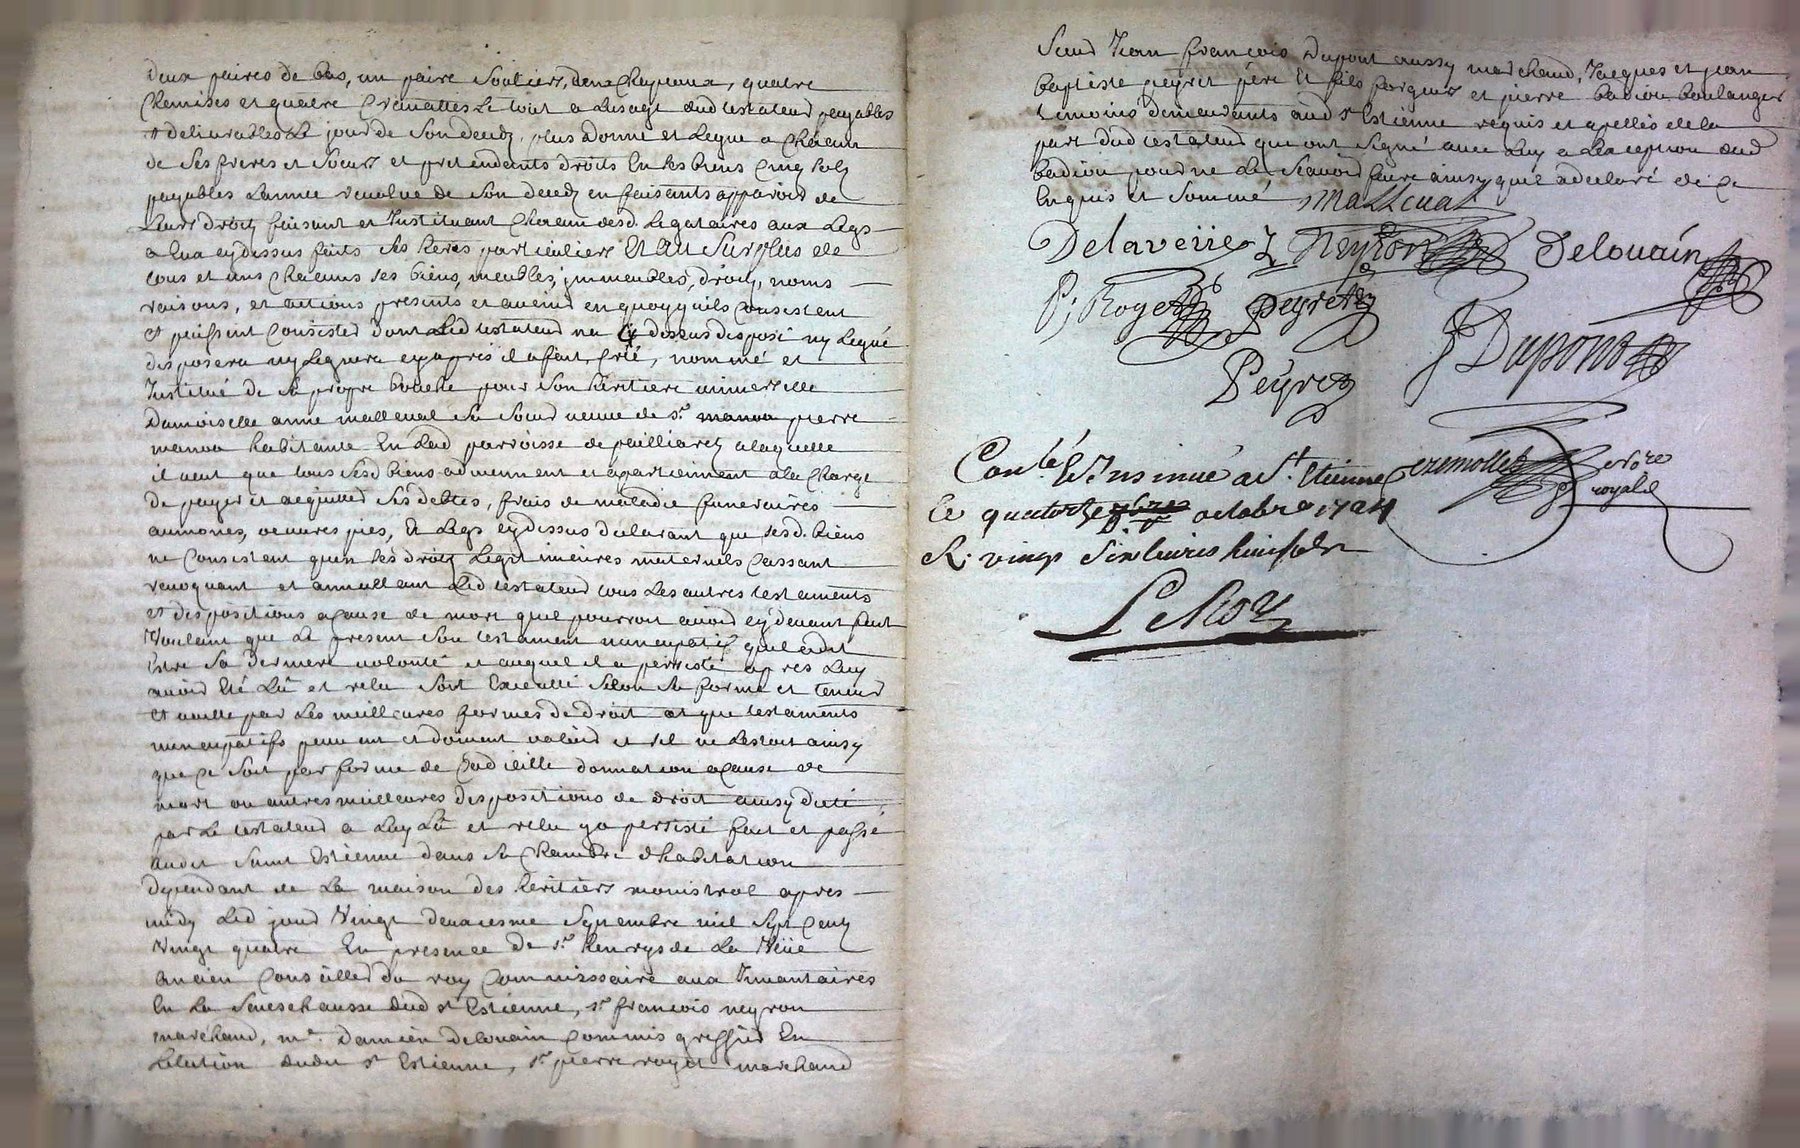 deux paires de bas, un paire souliers, deux chapeaux, quatre
chemises et quatre cravattes le tout a lusage dud testateud payables
et deliurables le jour de son deceds, plus donne et legue a chacun
de ses freres et soeurs et pretendants droits en ses biens cinq solz
payables lannee revolue de son deceds en faisants apparoir de
leurs droits faisant et Instituant chacun desd. legataires aux legs
a eux cydessus faits ses heres particuliers Et au surplus de
tous et uns chacuns ses biens, meubles, jmmeubles, droits, noms
raisons, et actions presents et avenir en quoy quils consistent
et puissent consister dont led testateud na cy dessus disposé ny legué
disposera ny leguera cyapres il a fait, créé, nommé et
Institué de sa propre bouche pour son heritiere universelle
Damoiselle anne mallenal sa soeur veuve de sr. manoa pierre
manoa habitante en lad parroisse de pailliarez a laquelle
il veut que tous sesd biens adviennent et apartiennent a la charge
de payer et acquitter ses debtes, frais de maladie funeraires
aumones, oeuvres pies, & legs cydessus declarant que sesd. biens
ne consistent quen ses droits legitimaires maternels cassant
revoquant et annullant led testateud tous les autres testaments
et dispositions a cause de mort quil pourroit avoir cydevant fait
Voulant que le present son testament nuncupatif quil a dit
Estre sa derniere volonté et auquel il a persisté apres luy
avoir Eté lû et relu soit Executté selon sa forme et teneur
Et vaille par les meilleures formes de droit et que testaments
nuncupatifs peuvent et doivent valoir et sil ne lestoit ainsy
que ce soit par forme de Codicille donnation a cause de
mort ou autres meilleures dispositions de droit ainsy dicté
par le testateud a luy lû et relu y a persisté fait et passé
audit saint Estienne dans sa chambre dhabitation
dependant de la maison des heritiers monistrol apres
midy led jour Vingt deuxiesme septembre mil sept cents
Vingt quatre En presence de sr. henrys de la
ancien conseiller du roy commissaire aux Inuantaires
En la seneschaussé dud st Estienne, sr francois neyron
marchand, me. Damien Delouain commis greffier En
lelection dudit st Estienne, sr pierre royet marchand
sieur Jean francois Dupont aussy marchand, Jacques et jean
baptiste peyret père et fils forgeurs et pierre badiou boulanger
temoins demeurants aud st Estienne requis et apellés de la
part dud testateud qui ont signé avec luy a lexception dud
badiou pour ne le scavoir faire ainsy quil a declaré de ce
Enquis et sommé Mallenal
Neyron Delouain
P. Royet Peyret
J Dupont
Peyret
Conlé & Insinué a St. Etienne
Le quatorze octobre 1724
R. vingt six livres
nore
royal
LeRoy